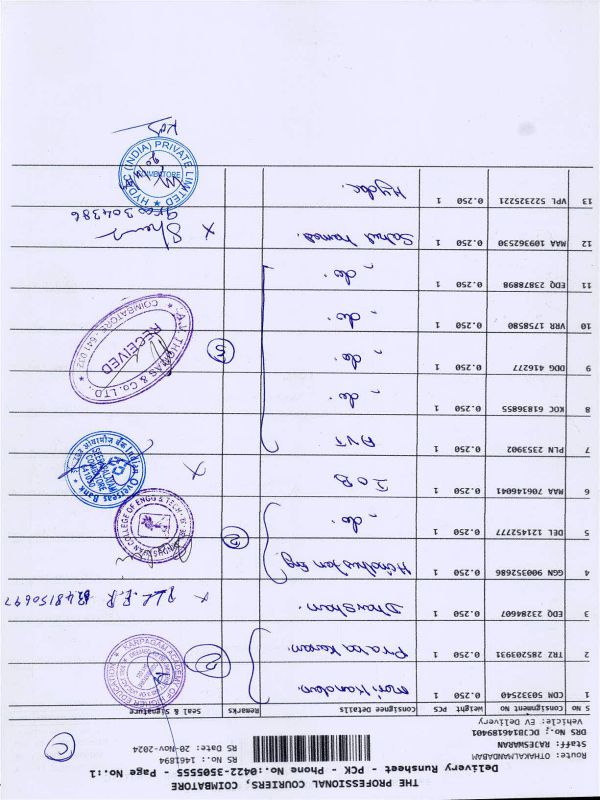 THE PROFESSIONAL COURIERS, COIMBATORE
Delivery Runsheet - PCK - Phone No.:0422-3505555 - Page No.:1
Route: OTHAKALMANDABAM
Staff: RAJESWARAN
DRS No.: DCJB1461894O1
Vehicle: EV Delivery
RS No.: 1461894
RS Date: 20-Nov-2024
S NO Consignment No Weight PCS Consignee Details Remarks Seal & Signature
1 CDM 50332540 0.250 1 Mani Kandan.
2 TRZ 285203931 0.250 1 Prabakaran. 2
KARPAGAM ACADEMY OF HIGHER EDUCATION
3 EDQ 23284607 0.250 1 Dharshan. x
4 GGN 900352686 0.250 1 Hindhustan Eng. 2
5 DEL 121452777 0.250 1 - do.
COLLEGE OF ENGG & TECH
6 MAA 706146641 0.250 1 IOB x
Indian Overseas Bank
COIMBATORE
7 PLN 2353902 0.250 1 AVT
8 KOC 61836855 0.250 1 - do.
9 DDG 416277 0.250 1 - do. 5
A.V. THOMAS & CO. LTD.
RECEIVED
COIMBATORE - 641 032
10 VRR 1758580 0.250 1 - do.
11 EDQ 23878898 0.250 1 - do.
12 MAA 109362530 0.250 1 x
9600304386
13 VPL 522325221 0.250 1 Hydac.
HYDAC (INDIA) PRIVATE LIMITED
COIMBATORE